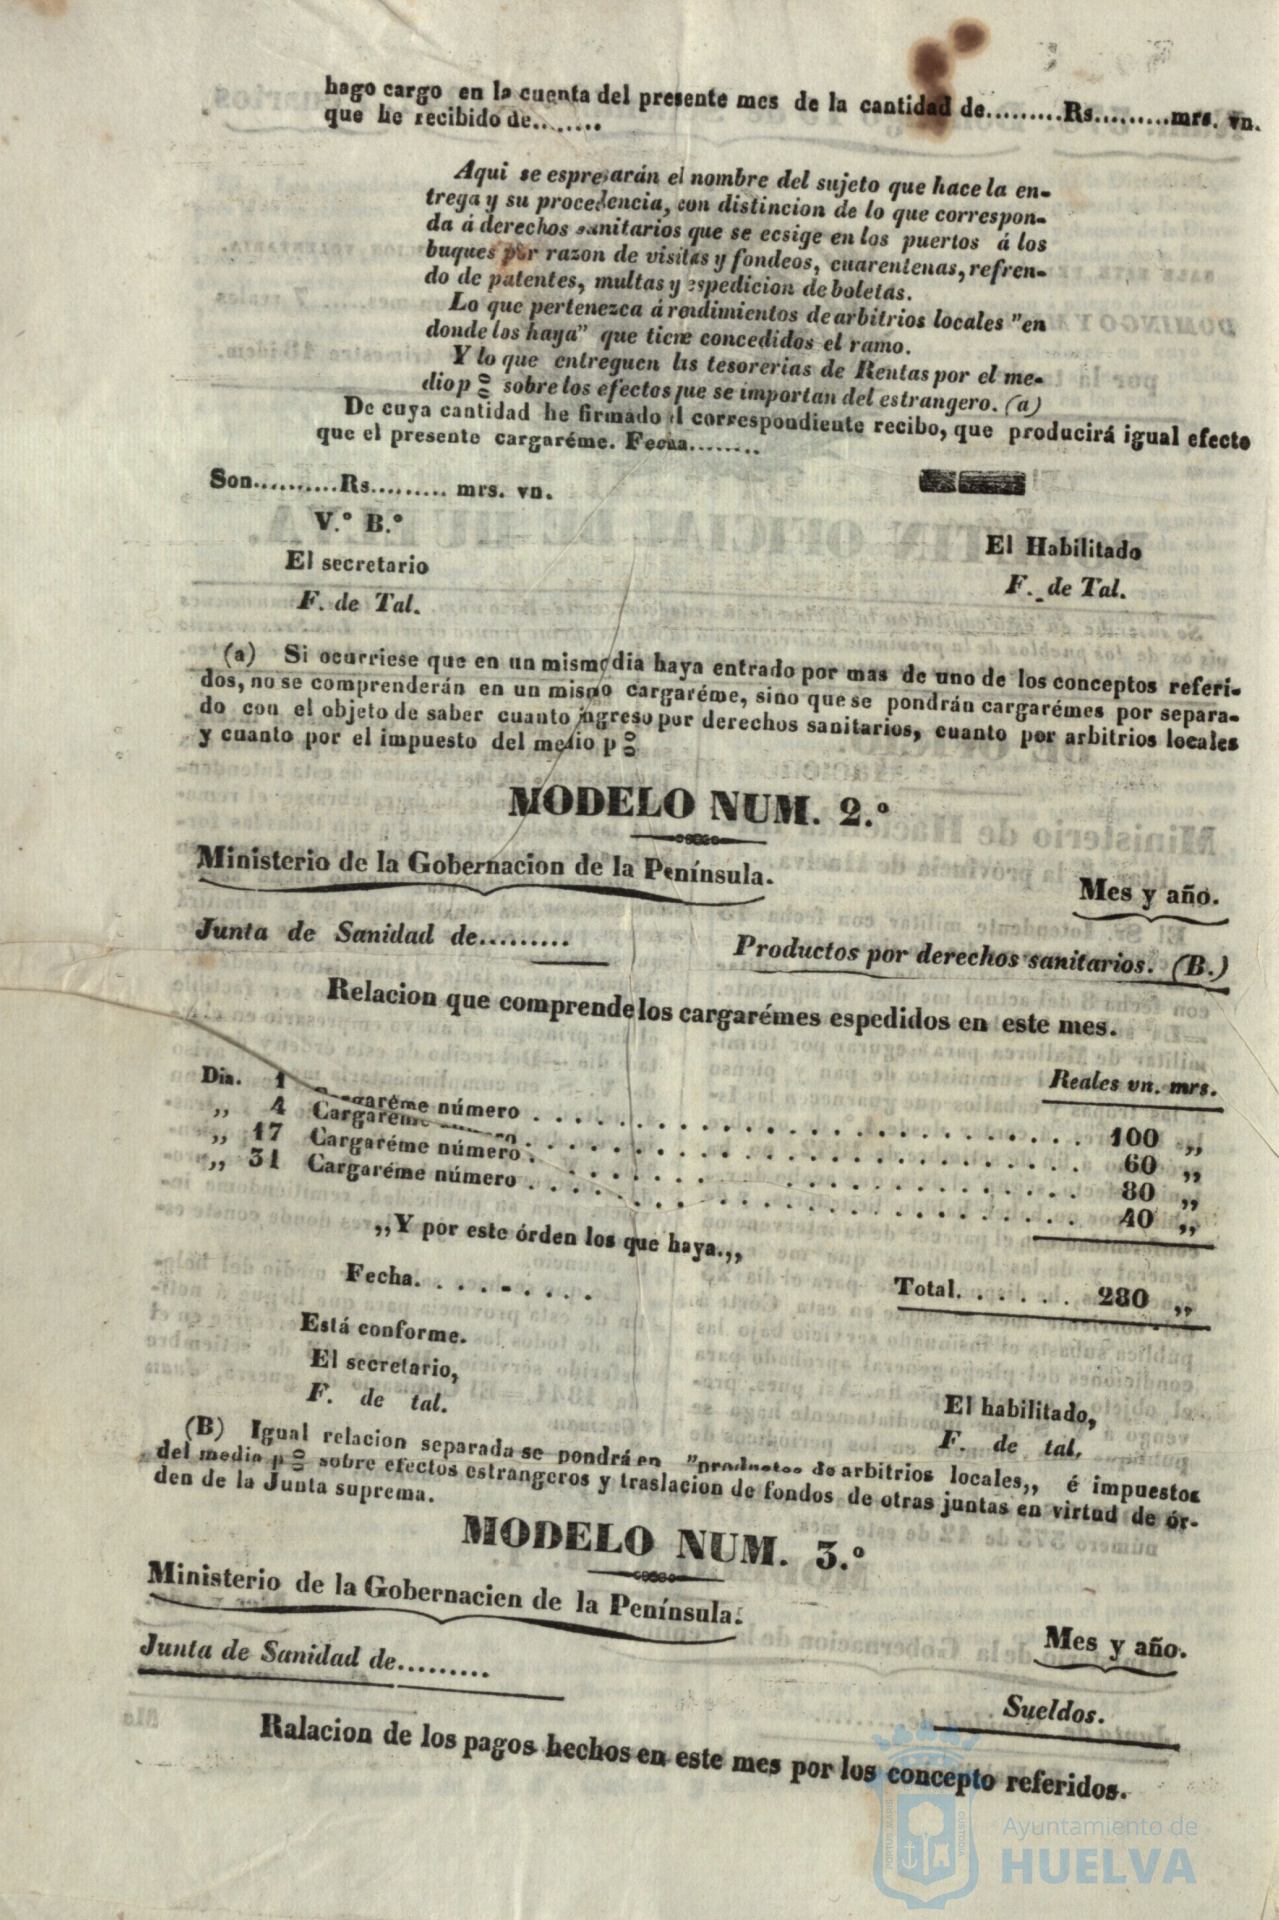 hago cargo en la cuenta del presente mes de la cantidad de.........Rs.........mrs. vn.
que he recibido de........
Aqui se espresarán el nombre del sujeto que hace la en-
trega y su procedencia, con distincion de lo que correspon-
da á derechos sanitarios que se ecsige en los puertos á los
buques por razon de visitas y fondeos, cuarentenas, refren-
do de patentes, multas y espedicion de boletas.
Lo que pertenezca á rendimientos de arbitrios locales "en
donde los haya" que tiene concedidos el ramo.
Y lo que entreguen las tesorerias de Rentas por el me-
dio p 0/0 sobre los efectos que se importan del estrangero. (a)
De cuya cantidad he firmado el correspondiente recibo, que producirá igual efecto
que el presente cargaréme. Fecha........
Son..........Rs......... mrs. vn.
V.º B.º
El secretario
F. de Tal.
El Habilitado
F. de Tal.
(a) Si ocurriese que en un mismo dia haya entrado por mas de uno de los conceptos referi-
dos, no se comprenderán en un mismo cargaréme, sino que se pondrán cargarémes por separa-
do con el objeto de saber cuanto ingreso por derechos sanitarios, cuanto por arbitrios locales
y cuanto por el impuesto del medio p 0/0
MODELO NUM. 2.º
Ministerio de la Gobernacion de la Península.
Mes y año.
Junta de Sanidad de.........
Productos por derechos sanitarios. (B.)
Relacion que comprende los cargarémes espedidos en este mes.
Reales vn. mrs.
Dia. 1 Cargaréme número . . . . . . . . . . . . . . . . . . . . 100 ,,
,, 4 Cargaréme . . . . . . . . . . . . . . . . . . . . 60 ,,
,, 17 Cargaréme número . . . . . . . . . . . . . . . . . . . . 80 ,,
,, 31 Cargaréme número . . . . . . . . . . . . . . . . . . . . 40 ,,
,,Y por este órden los que haya.,,
Fecha. . . . . . . . .
Total. . . . . . 280 ,,
Está conforme.
El secretario,
F. de tal.
El habilitado,
F. de tal.
(B) Igual relacion separada se pondrá en "productos de arbitrios locales,, é impuestos
del medio p 0/0 sobre efectos estrangeros y traslacion de fondos de otras juntas en virtud de ór-
den de la Junta suprema.
MODELO NUM. 3.º
Ministerio de la Gobernacien de la Península.
Mes y año.
Junta de Sanidad de.........
Sueldos.
Ralacion de los pagos hechos en este mes por los concepto referidos.
PORTUS MARIS
CUSTODIA
Ayuntamiento de
HUELVA